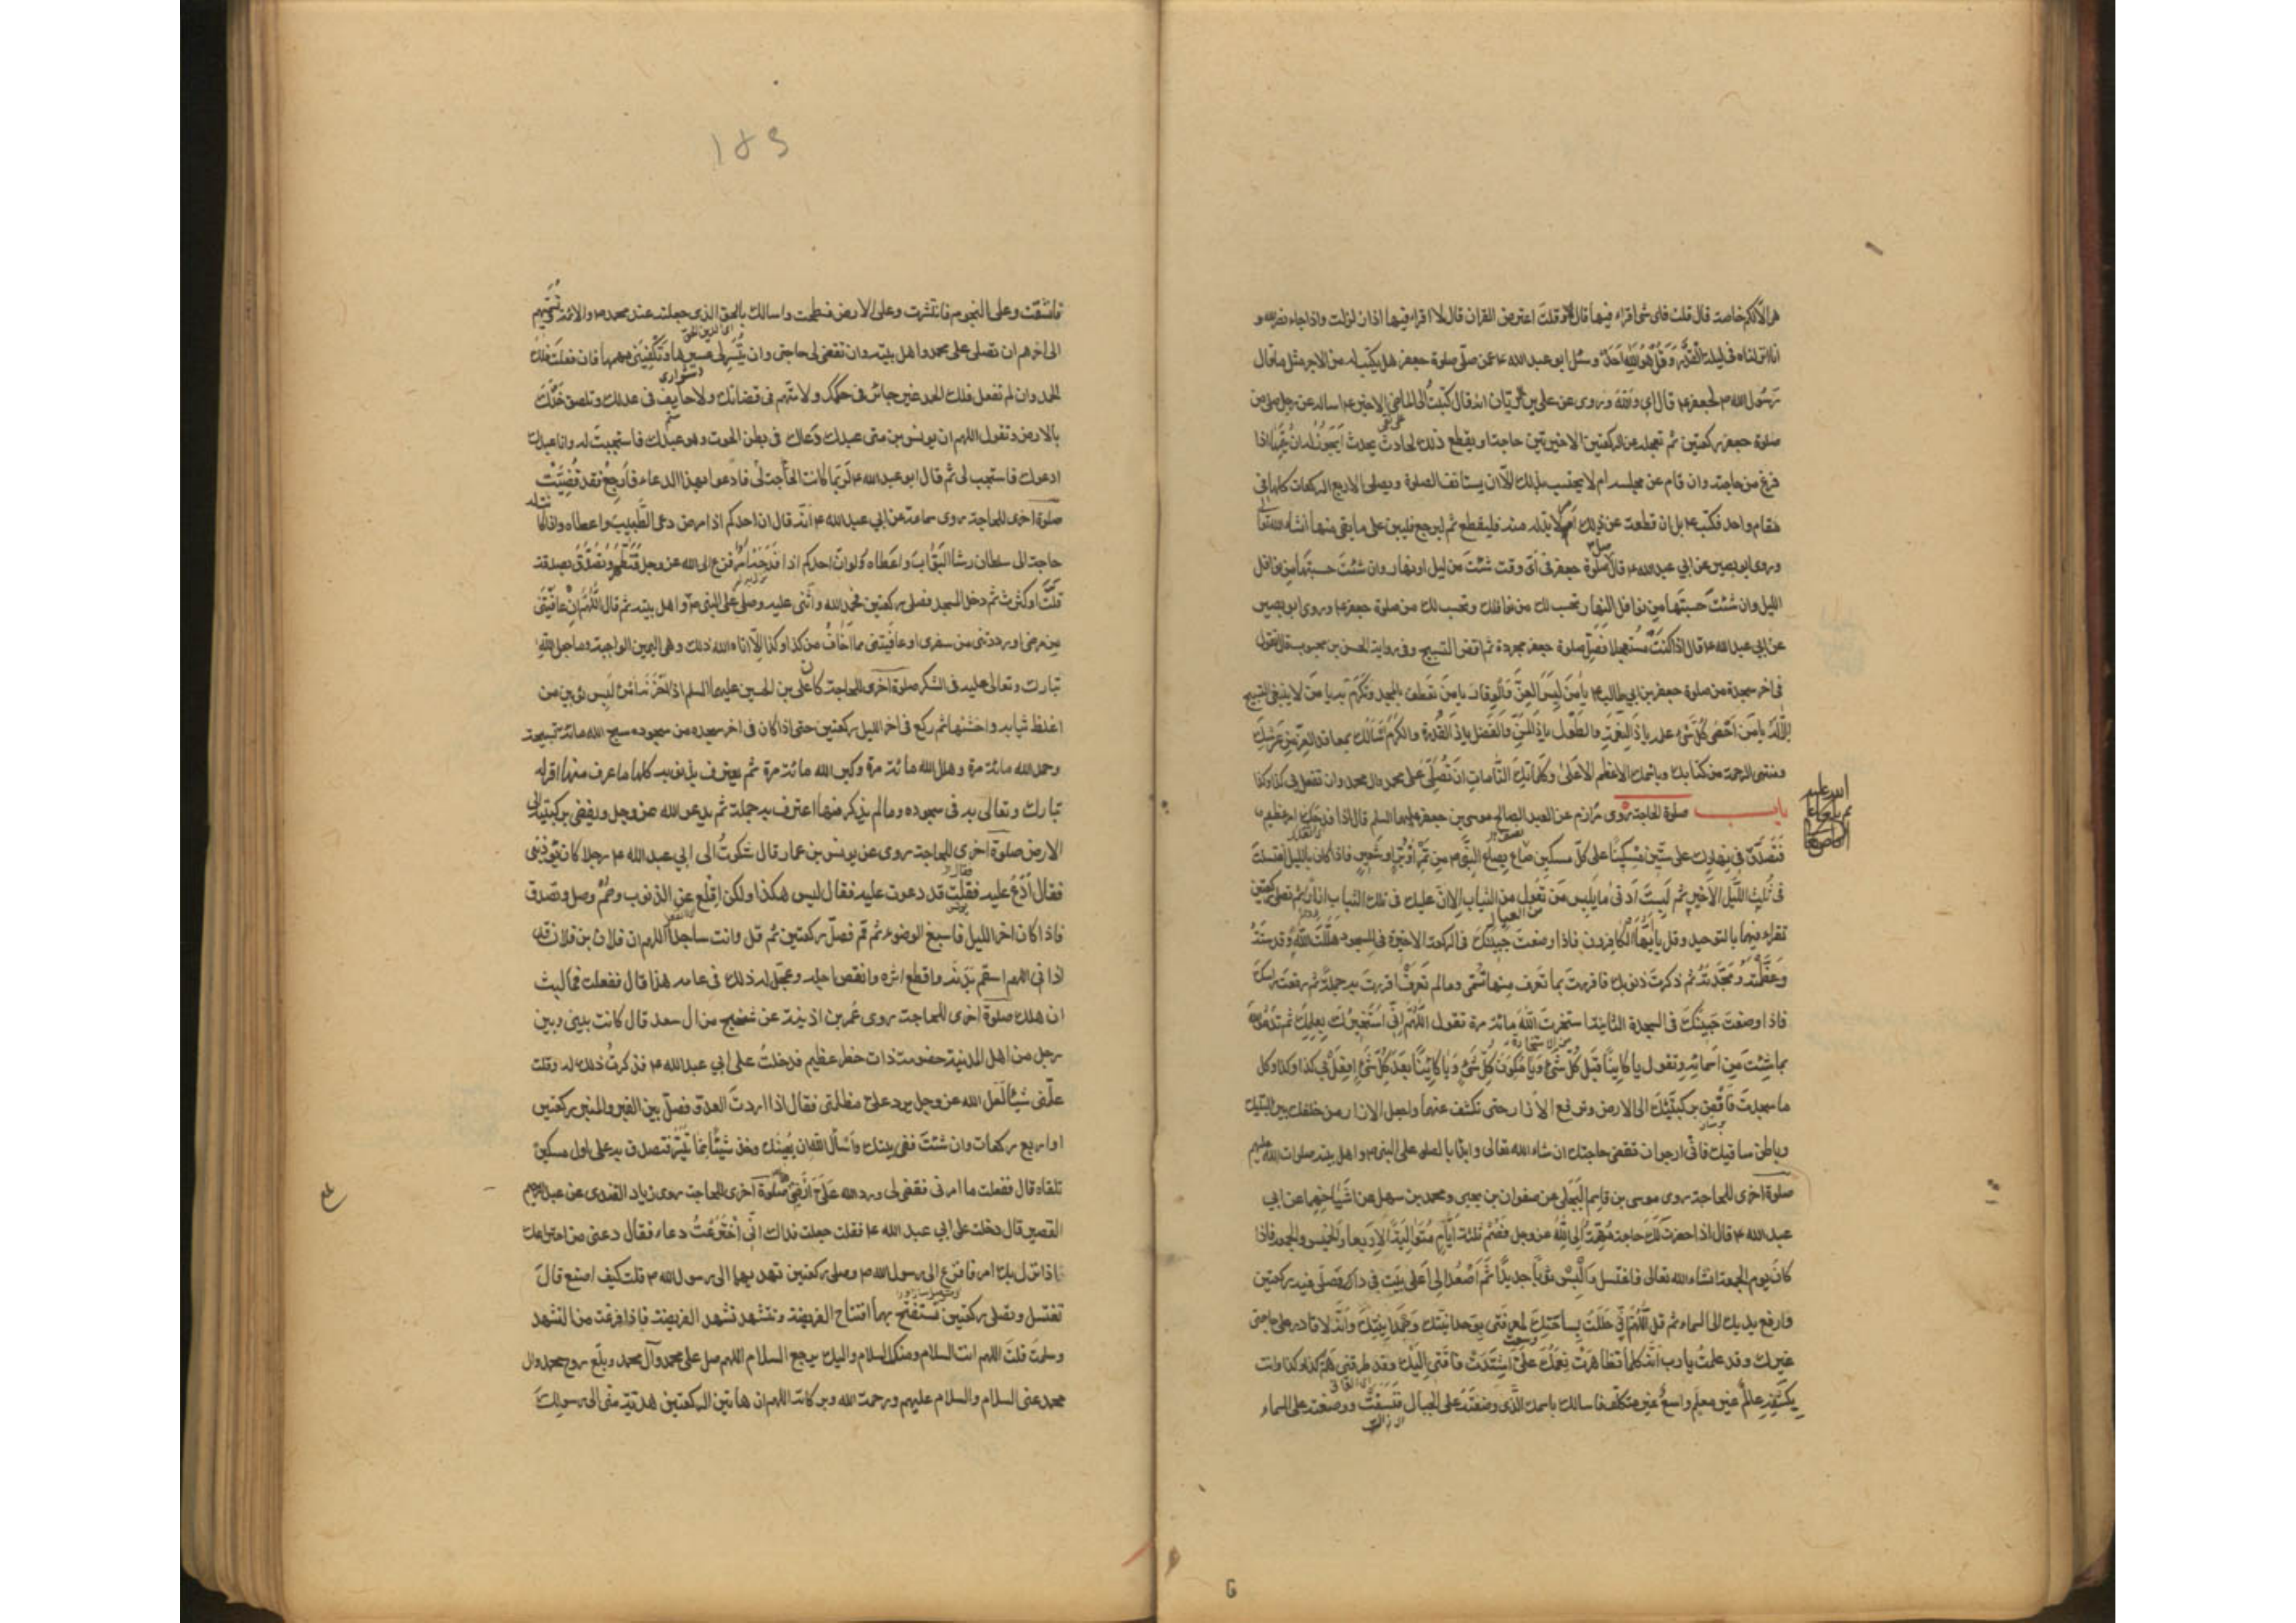 هي الا لكم خاصة قال قلت فاي شئ اقراء فيها قال و قلت اعترض القران قال لا اقراء فيها اذا زلزلت واذا جاء نصر الله و
انا انزلناه في ليلة القدر وقل هو الله احد وسئل ابو عبد الله ع عمن صلى صلوة جعفر هل يكتب له من الاجر مثل ما قال
رسول الله ص لجعفر ع قال اي والله وروى عن علي بن الريان انه قال كتبت الى الماضي الاخير ع اساله عن رجل صلى من
صلوة جعفر ركعتين ثم تعجله عن الركعتين الاخيرتين حاجة او يقطع ذلك لحادث يحدث ايجوز له ان يتمها اذا
فرغ من حاجته وان قام عن مجلسه ام لا يحتسب بذلك الا ان يستانف الصلوة ويصلي الاربع الركعات كلها في
مقام واحد فكتب ع بل ان قطعه عن ذلك امر لا بد له منه فليقطع ثم ليرجع فليبن على ما بقي منها انشاء الله تعالى
وروى ابو بصير عن ابي عبد الله ع قال صلوة جعفر في اي وقت شئت من ليل او نهار وان شئت حسبتها من نوافل
الليل وان شئت حسبتها من نوافل النهار تحسب لك من نوافلك وتحسب لك من صلوة جعفر ع وروى ابو بصير
عن ابي عبد الله ع قال اذا كنت مستعجلا فصل صلوة جعفر مجردة ثم اقض التسبيح وفي رواية الحسن بن محبوب قال تقول
في اخر سجدة من صلوة جعفر بن ابي طالب ع يا من لبس العز والوقار يا من تعطف بالمجد وتكرم به يا من لا ينبغي التسبيح
الا له يا من احصى كل شئ علمه يا ذا النعمة والطول يا ذا المن والفضل يا ذا القدرة والكرم اسالك بمعاقد العز من عرشك
ومنتهى الرحمة من كتابك وباسمك الاعظم الاعلى وكلماتك التامات ان تصلي على محمد وال محمد وان تفعل بي كذا وكذا
باب صلوة الحاجة روى مرازم عن العبد الصالح موسى بن جعفر عليهما السلم قال اذا فدحك امر عظيم
فتصدق في نهارك على ستين مسكينا على كل مسكين صاع بصاع النبي ص من تمر او بر او شعير فاذا كان بالليل اغتسلت
في ثلث الليل الاخير ثم لبست ادنى ما يلبس من تعول من الثياب الا ان عليك في تلك الثياب ازارا ثم تصلي ركعتين
تقراء فيهما بالتوحيد وقل يا ايها الكافرون فاذا وضعت جبينك في الركعة الاخيرة في السجود هللت الله وقدسته
وعظمته ومجدته ثم ذكرت ذنوبك فاقررت بما تعرف منها تسمى وما لم تعرف اقررت به جملة ثم رفعت راسك
فاذا وضعت جبينك في السجدة الثانية استخرت الله مائة مرة تقول اللهم اني استخيرك بعلمك ثم تدعو الله
بما شئت من اسمائه وتقول يا كاينا قبل كل شئ ويا مكون كل شئ ويا كاينا بعد كل شئ افعل بي كذا وكذا وكل
ما سجدت فافض بركبتيك الى الارض وترفع الازار حتى تكشف عنهما واجعل الازار من خلفك بين اليتيك
وباطن ساقيك فاني ارجو ان تقضى حاجتك ان شاء الله تعالى وابدا بالصلوة على النبي ص واهل بيته صلوات الله عليهم
صلوة اخرى للحاجة روى موسى بن قاسم البجلي عن صفوان بن يحيى ومحمد بن سهل عن اشياخهما عن ابي
عبد الله ع قال اذا حضرت لك حاجة مهمة الى الله عز وجل فصم ثلثة ايام متوالية الاربعا والخميس والجمعة فاذا
كان يوم الجمعة انشاء الله تعالى فاغتسل والبس ثوبا جديدا ثم اصعد الى اعلى بيت في دارك فصل فيه ركعتين
وارفع يديك الى السماء ثم قل اللهم اني حللت بساحتك لمعرفتي بوحدانيتك وصمدانيتك وانه لا قادر على حاجتي
غيرك وقد علمت يا رب انه كلما تظاهرت نعمك علي اشتدت فاقتي اليك وقد طرقني هم كذا وكذا وانت
بكشفه عالم غير معلم واسع غير متكلف فاسالك باسمك الذي وضعته على الجبال فنسفت ووضعته على السماء
١٥٩
فانشقت وعلى النجوم فانتثرت وعلى الارض فسطحت واسالك بالحق الذي جعلته عند محمد ص والائمة وتسميهم
الى اخرهم ان تصلي على محمد واهل بيته وان تقضي لي حاجتي وان تيسر لي عسيرها وتكفيني مهمها فان فعلت فلك
الحمد وان لم تفعل فلك الحمد غير جائر في حكمك ولا متهم في قضائك ولا حايف في عدلك وتلصق خدك
بالارض وتقول اللهم ان يونس بن متى عبدك دعاك في بطن الحوت وهو عبدك فاستجبت له وانا عبدك
ادعوك فاستجب لي ثم قال ابو عبد الله ع لربما كانت الحاجة لي فادعو بهذا الدعاء فارجع وقد قضيت
صلوة اخرى للحاجة روى سماعة عن ابي عبد الله ع انه قال ان احدكم اذا مرض دعى الطبيب واعطاه واذا كانت له
حاجة الى سلطان رشا البواب واعطاه ولو ان احدكم اذا فدحه امر فزع الى الله عز وجل فتطهر وتصدق بصدقة
قلت او كثرت ثم دخل المسجد فصلى ركعتين فحمد الله واثنى عليه وصلى على النبي ص واهل بيته ثم قال اللهم ان عافيتني
من مرضي او رددتني من سفري او عافيتني مما اخاف من كذا وكذا الا اتاه الله ذلك وهي اليمين الواجبة وما جعل الله
تبارك وتعالى عليه في الشكر صلوة اخرى للحاجة كان علي بن الحسين عليهما السلم اذا حزنه امر لبس ثوبين من
اغلظ ثيابه واخشنها ثم ركع في اخر الليل ركعتين حتى اذا كان في اخر سجدة من سجوده سبح الله مائة تسبيحة
وحمد الله مائة مرة وهلل الله مائة مرة وكبر الله مائة مرة ثم يعترف بذنوبه كلها ما عرف منها اقر له
تبارك وتعالى به في سجوده وما لم يذكر منها اعترف به جملة ثم يدعو الله عز وجل ويفضي بركبتيه الى
الارض صلوة اخرى للحاجة روى عن يونس بن عمار قال شكوت الى ابي عبد الله ع رجلا كان يؤذيني
فقال ادع عليه فقلت قد دعوت عليه فقال ليس هكذا ولكن اقلع عن الذنوب وصم وصل وتصدق
فاذا كان اخر الليل فاسبغ الوضوء ثم قم فصل ركعتين ثم قل وانت ساجد اللهم ان فلان بن فلان قد
اذاني اللهم اسقم بدنه واقطع اثره وانقص اجله وعجل له ذلك في عامه هذا قال ففعلت فما لبث
ان هلك صلوة اخرى للحاجة روى عمر بن اذينة عن شيخ من ال سعد قال كانت بيني وبين
رجل من اهل المدينة خصومة ذات خطر عظيم فدخلت على ابي عبد الله ع فذكرت ذلك له وقلت
علمني شيئا لعل الله عز وجل يرد علي مظلمتي فقال اذا اردت العدو فصل بين القبر والمنبر ركعتين
او اربع ركعات وان شئت ففي بيتك واسأل الله ان يعينك وخذ شيئا مما تيسر فتصدق به على اول مسكين
تلقاه قال ففعلت ما امرني فقضى لي ورد الله علي ارضي صلوة اخرى للحاجة روى زياد القندي عن عبد الرحيم
القصير قال دخلت على ابي عبد الله ع فقلت جعلت فداك اني اخترعت دعاء فقال دعني من اختراعك
اذا نزل بك امر فافزع الى رسول الله ص وصل ركعتين تهديهما الى رسول الله ص قلت كيف اصنع قال
تغتسل وتصلي ركعتين تستفتح بهما افتتاح الفريضة وتتشهد تشهد الفريضة فاذا فرغت من التشهد
وسلمت قلت اللهم انت السلام ومنك السلام واليك يرجع السلام اللهم صل على محمد وآل محمد وبلغ روح محمد وال
محمد عني السلام والسلام عليهم ورحمة الله وبركاته اللهم ان هاتين الركعتين هدية مني الى رسولك